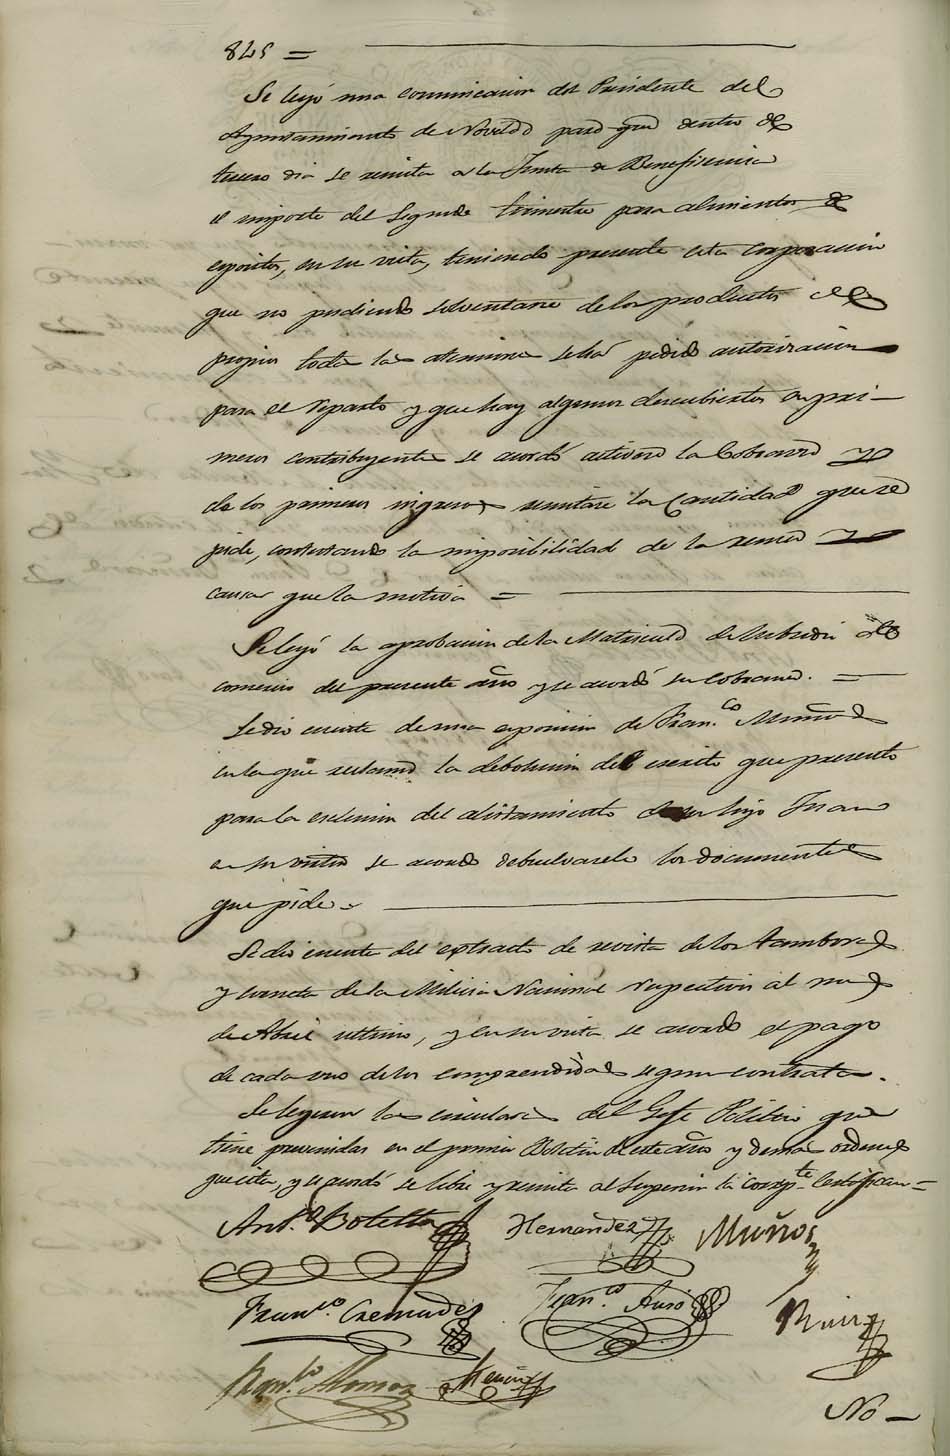 845 =
Se leyó una comunicacion del Presidente del
Ayuntamiento de Novelda para que dentro de
tercero dia se remita a la Junta de Beneficencia
el importe del segundo trimestre para alimentos de
espositos, en su vista, teniendo presente esta corporacion
que no pudiendo solventarse de los productos de
propios todas las atenciones se ha pedido autorizacion
para el reparto y que hay algunos descubiertos en pri-
meros contribuyentes se acordó activar la cobranza y
de los primeros ingresos remitase la cantidad que se
pide, contestando la imposibilidad de la remesa y
causas que la motiva =
Se leyó la aprobacion de la Matricula de subsidio del
comercio del presente año y se acordó su cobranza. =
Se dio cuenta de una esposicion de Fran.co Muños
en la que reclama la debolucion del escrito que presentó
para la esclusion del alistamiento de su hijo Juan
en su vista se acordó debuelvansele los documentos
que pide.
Se dio cuenta del estracto de revista de los tambores
y corneta de la Milicia Nacional respectivos al mes
de Abril ultimo, y en su vista se acordó el pago
de cada uno de los comprendidos segun contrata.
Se leyeron las circulares del Gefe Politico que
tiene prevenidas en el primer Boletin de este año y demas ordenes
que cita, y se acordó se libre y remita al Superior la corresp.te Certifican=
Ant.o Botella Hernandez Muños
Fran.co Cremades Fran.co Ruiz
Fran.co Alonso
No-